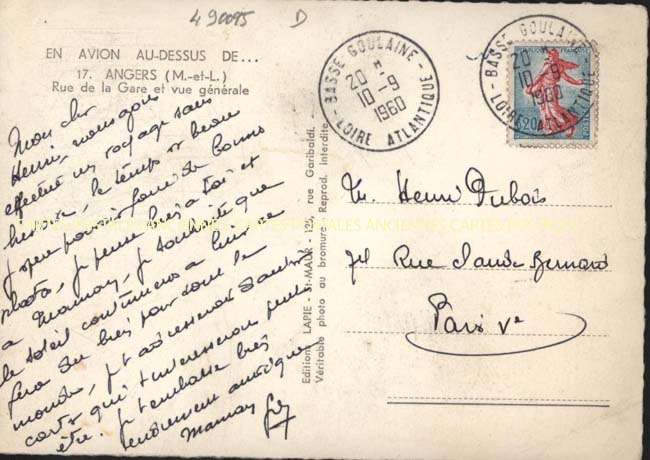 490095 D
EN AVION AU-DESSUS DE...
17. ANGERS (M.-et-L.)
Rue de la Gare et vue générale
BASSE GOULAINE
20 H
10-9
1960
LOIRE ATLANTIQUE
BASSE GOULAINE
20 H
10-9
1960
LOIRE ATLANTIQUE
REPUBLIQUE FRANCAISE
0,20
POSTES
Mon cher
Henri, nous avons
effectué un voyage sans
le temps est beau
j'espère pouvoir faire de bonnes
photos, je pense bien à toi et
à Maman, je souhaite que
le soleil continuera à luire
sera bien pour tout le
monde, je t'adresserai d'autres
cartes qui t'intéresseront peut-
être. Je t'embrasse bien
tendrement ainsi que
Maman
CARTES POSTALES ANCIENNES CARTES POSTALES
Editions LAPIE - St-MAUR - 125, rue Garibaldi.
Véritable photo au bromure. Reprod. interdite.
M. Henri Dubois
74 Rue Claude Bernard
Paris Ve